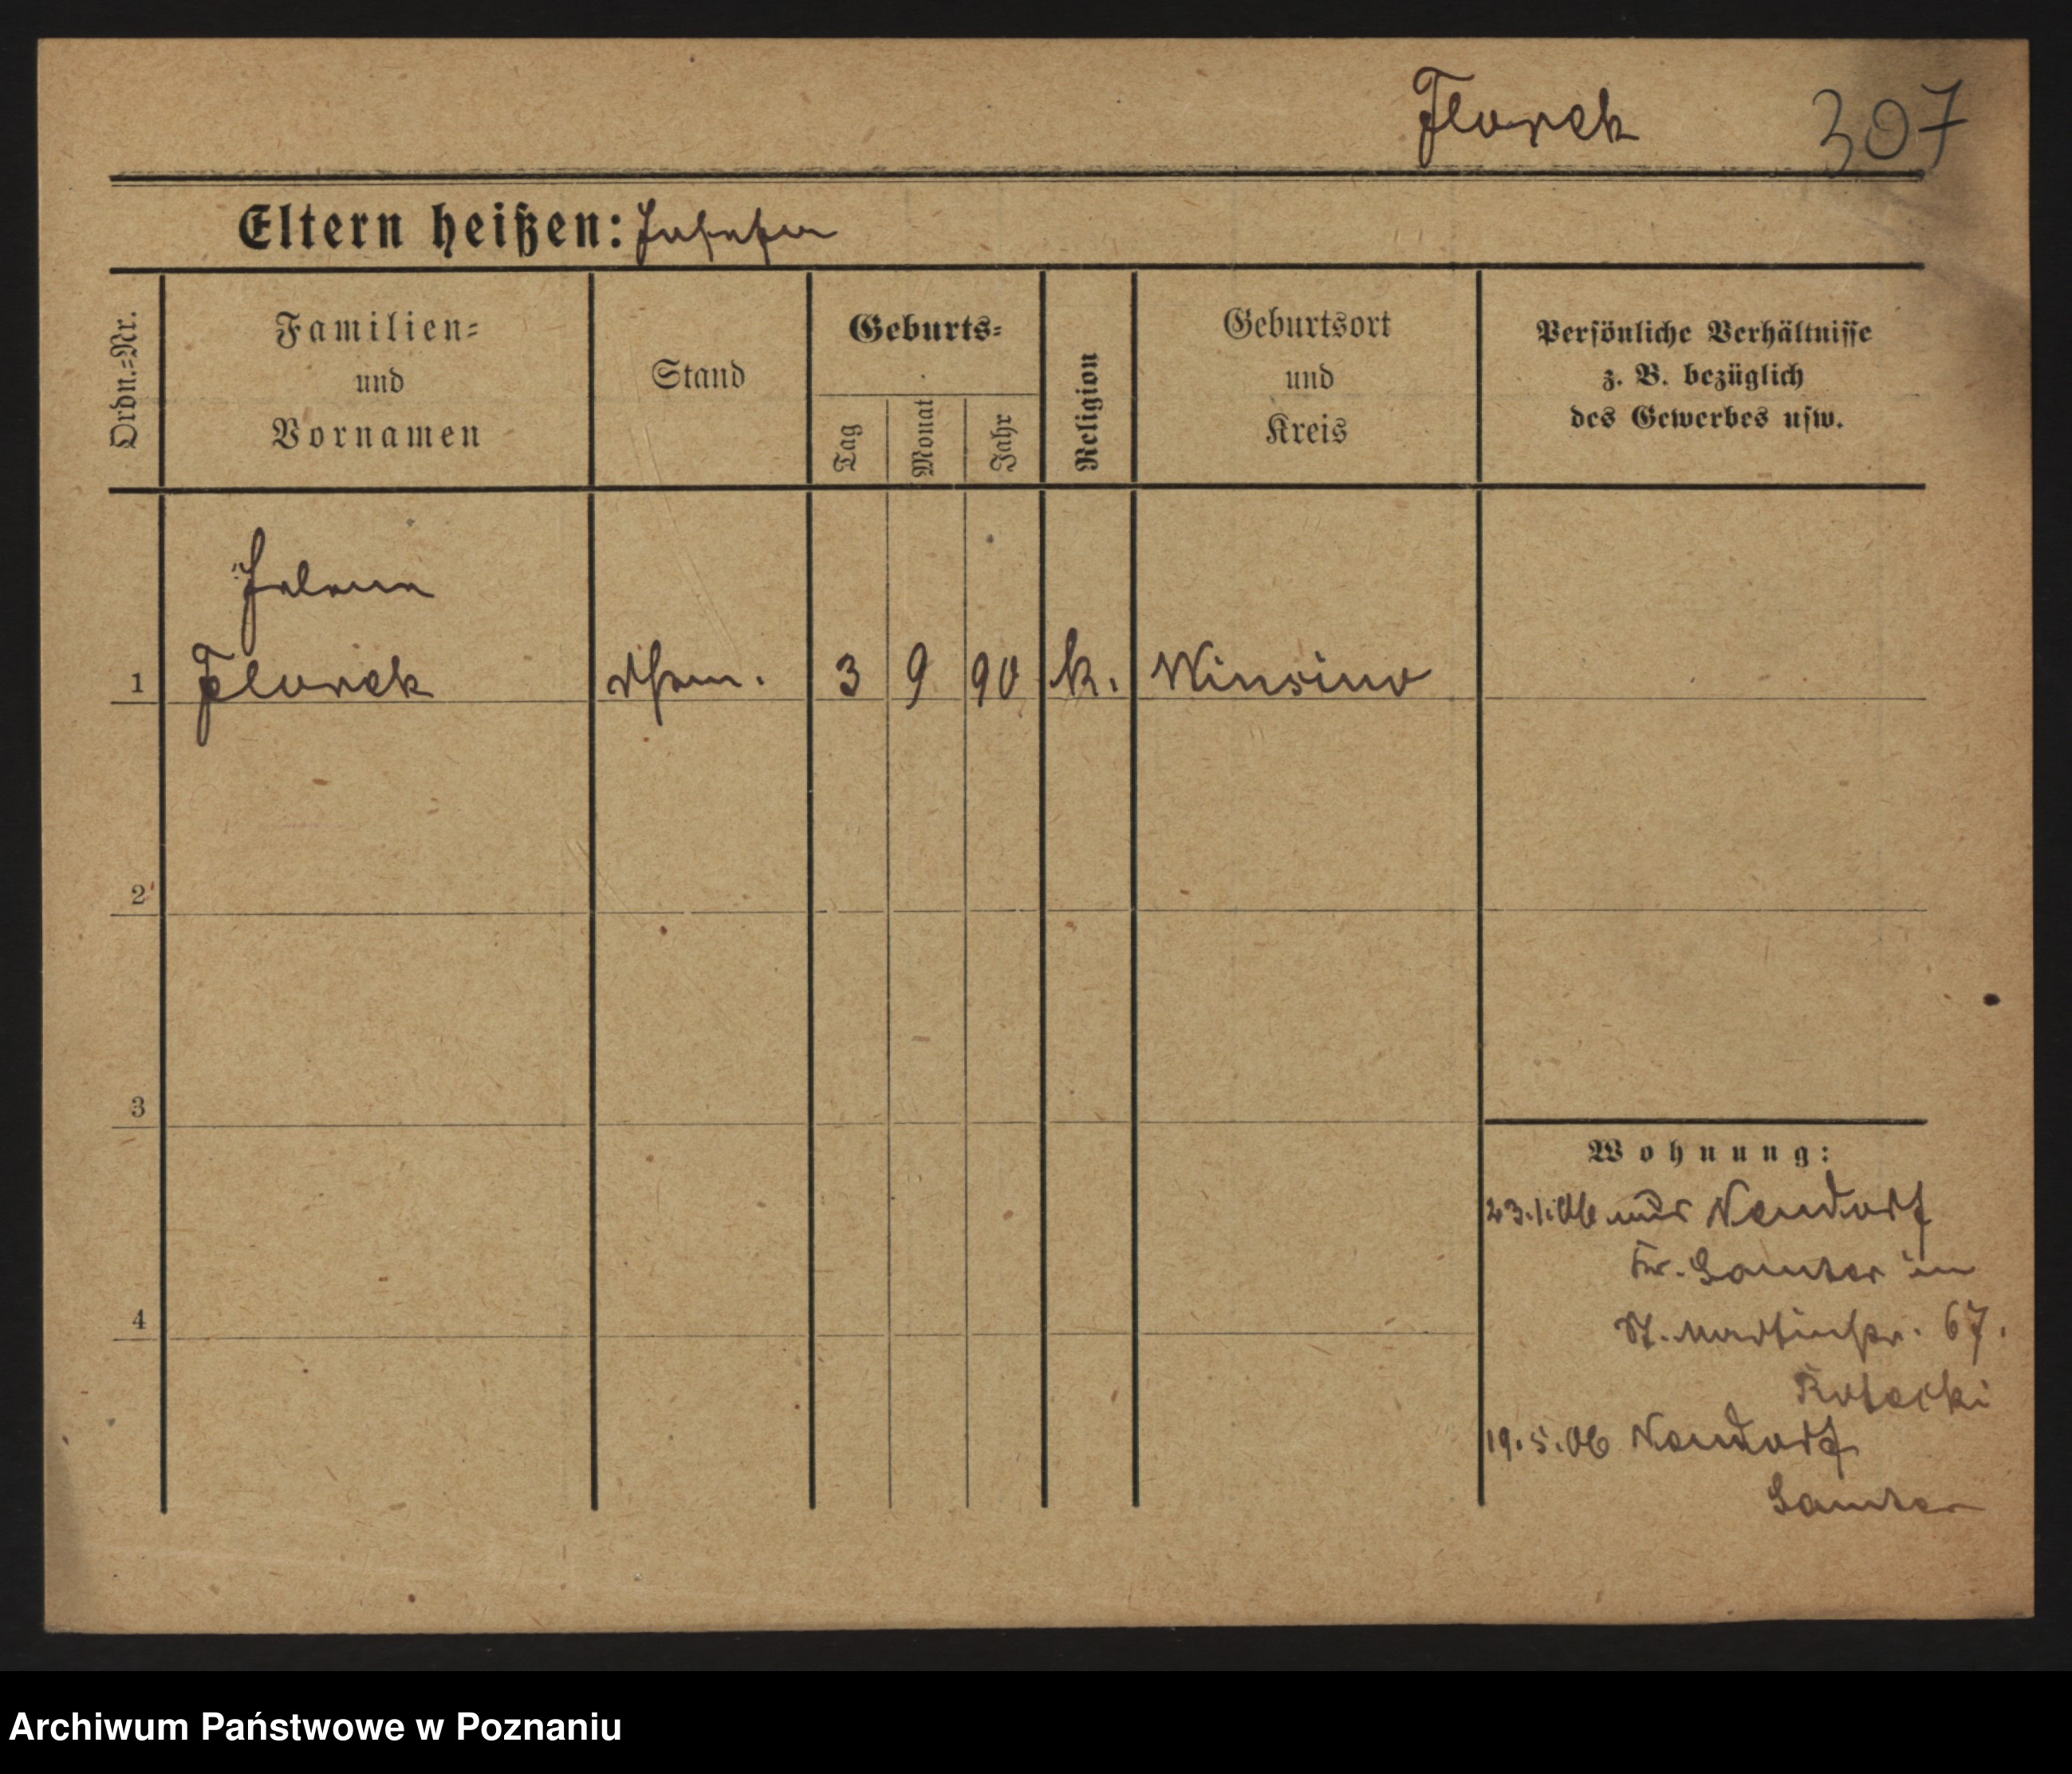 Florek 307
Eltern heißen:
Ordn.-Nr.
Familien-
und
Vornamen
Stand
Geburts-
Tag
Monat
Jahr
Religion
Geburtsort
und
Kreis
Persönliche Verhältnisse
z. B. bezüglich
des Gewerbes usw.
Helene
1 Florek 3 9 90 k.
2
3
4
Wohnung:
23.1.06 aus Neudorf
Kr. Samter in
St. Martinstr. 67.
19.5.06 Neudorf
Samter
Archiwum Państwowe w Poznaniu